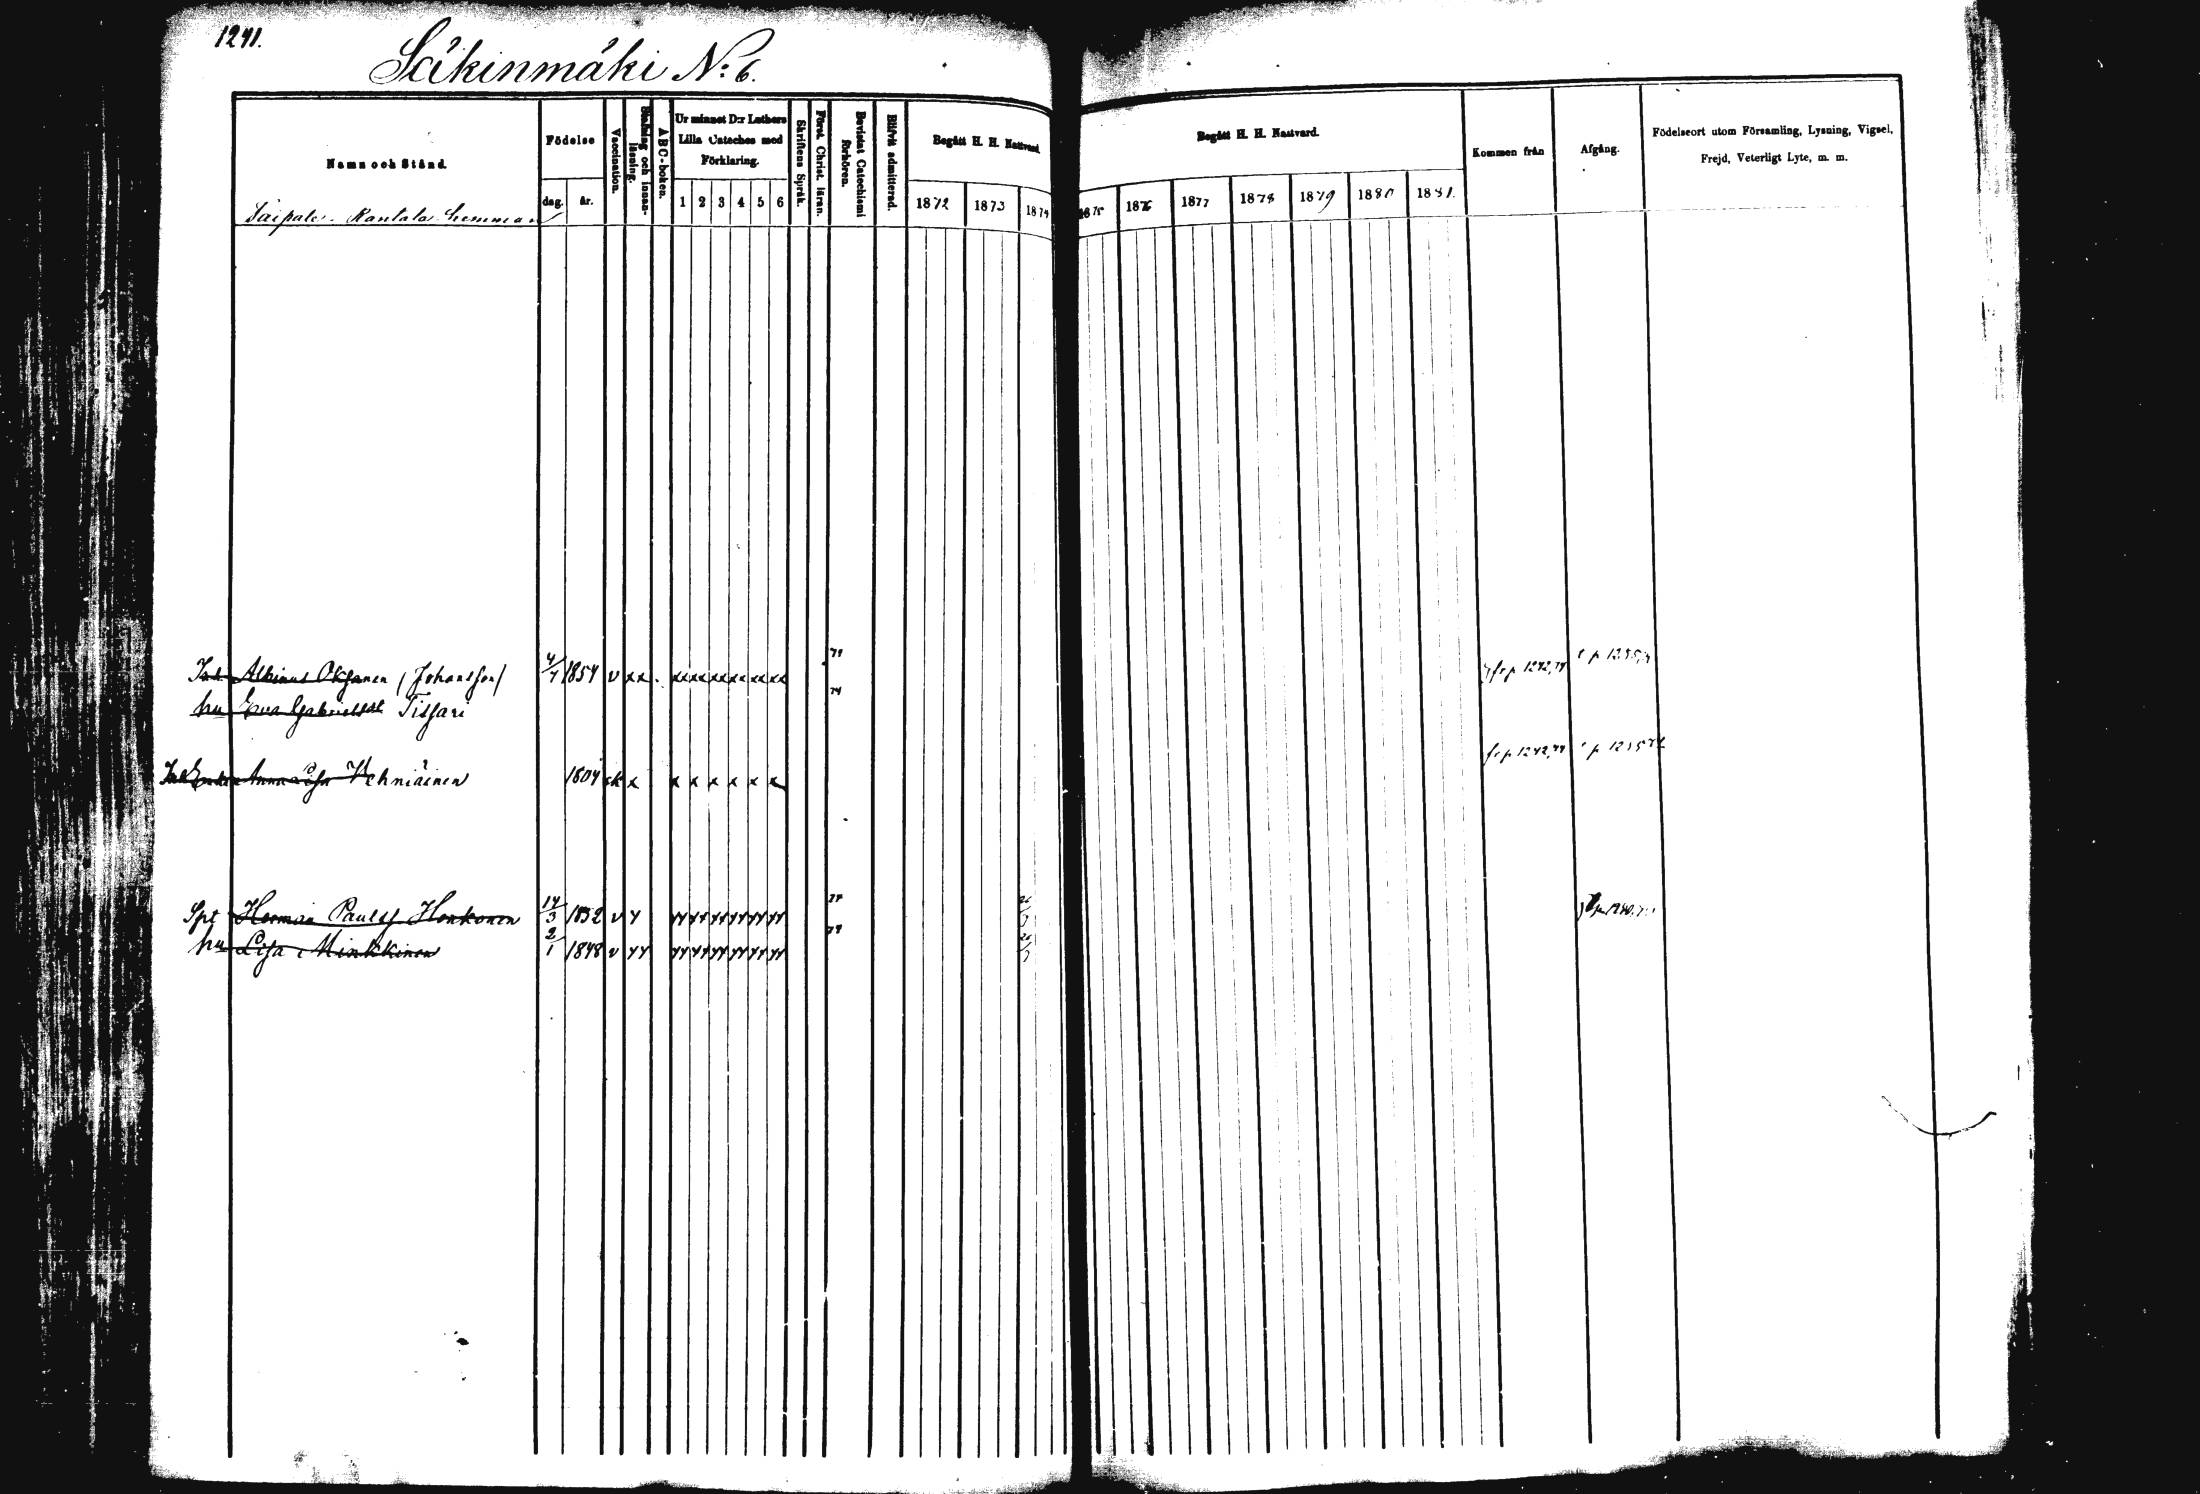 1241.
Säkinmäki N:6.
Namn och Stånd.
Födelse
dag.
år.
Vaccination.
Stafning och innanläsning.
ABC-boken.
Ur minnet D:r Luthers
Lilla Cateches med
Förklaring.
1 2 3 4 5 6
Skriftens Språk.
Först. Christ. läran.
Bevistat Catechismi förhören.
Blifvit admitterad.
Begått H. H. Nattvard.
1872 1873 1874
Begått H. H. Nattvard.
1875 1876 1877 1878 1879 1880 1881.
Kommen från
Afgång.
Födelseort utom Församling, Lysning, Vigsel,
Frejd, Veterligt Lyte, m. m.
Taipale. Rantala hemman
Albinus Oksanen (Johansson) 4/7 1854 v xx xx xx xx xx xx xx 79 fr p 1242,74
hu Eva Gabrielsdr Tissari 74
Enkan Anna Lisa Vehniäinen 1804 x x x x x x x fr p 1242,74
Spt Herman Paulss Honkonen 14/3 1852 v
hu Lisa Minkkinen 2/1 1848 v